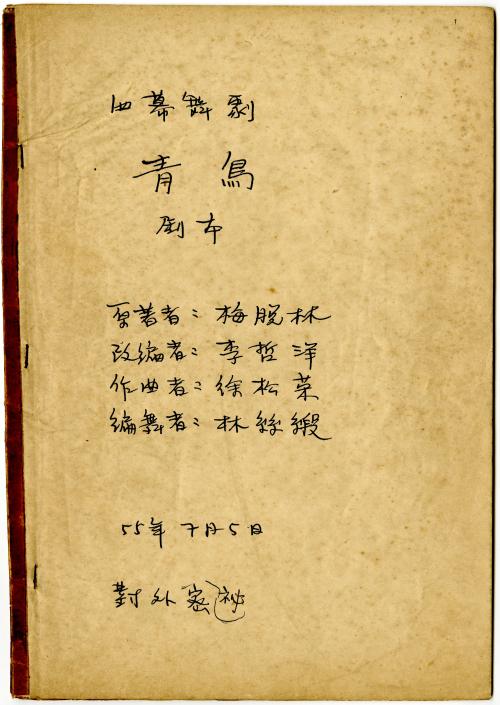 四幕舞劇
青鳥
劇本
原著者：梅脱林
改編者：李哲洋
作曲者：徐松榮
編舞者：林絲緞
55年7月5日
對外密祕